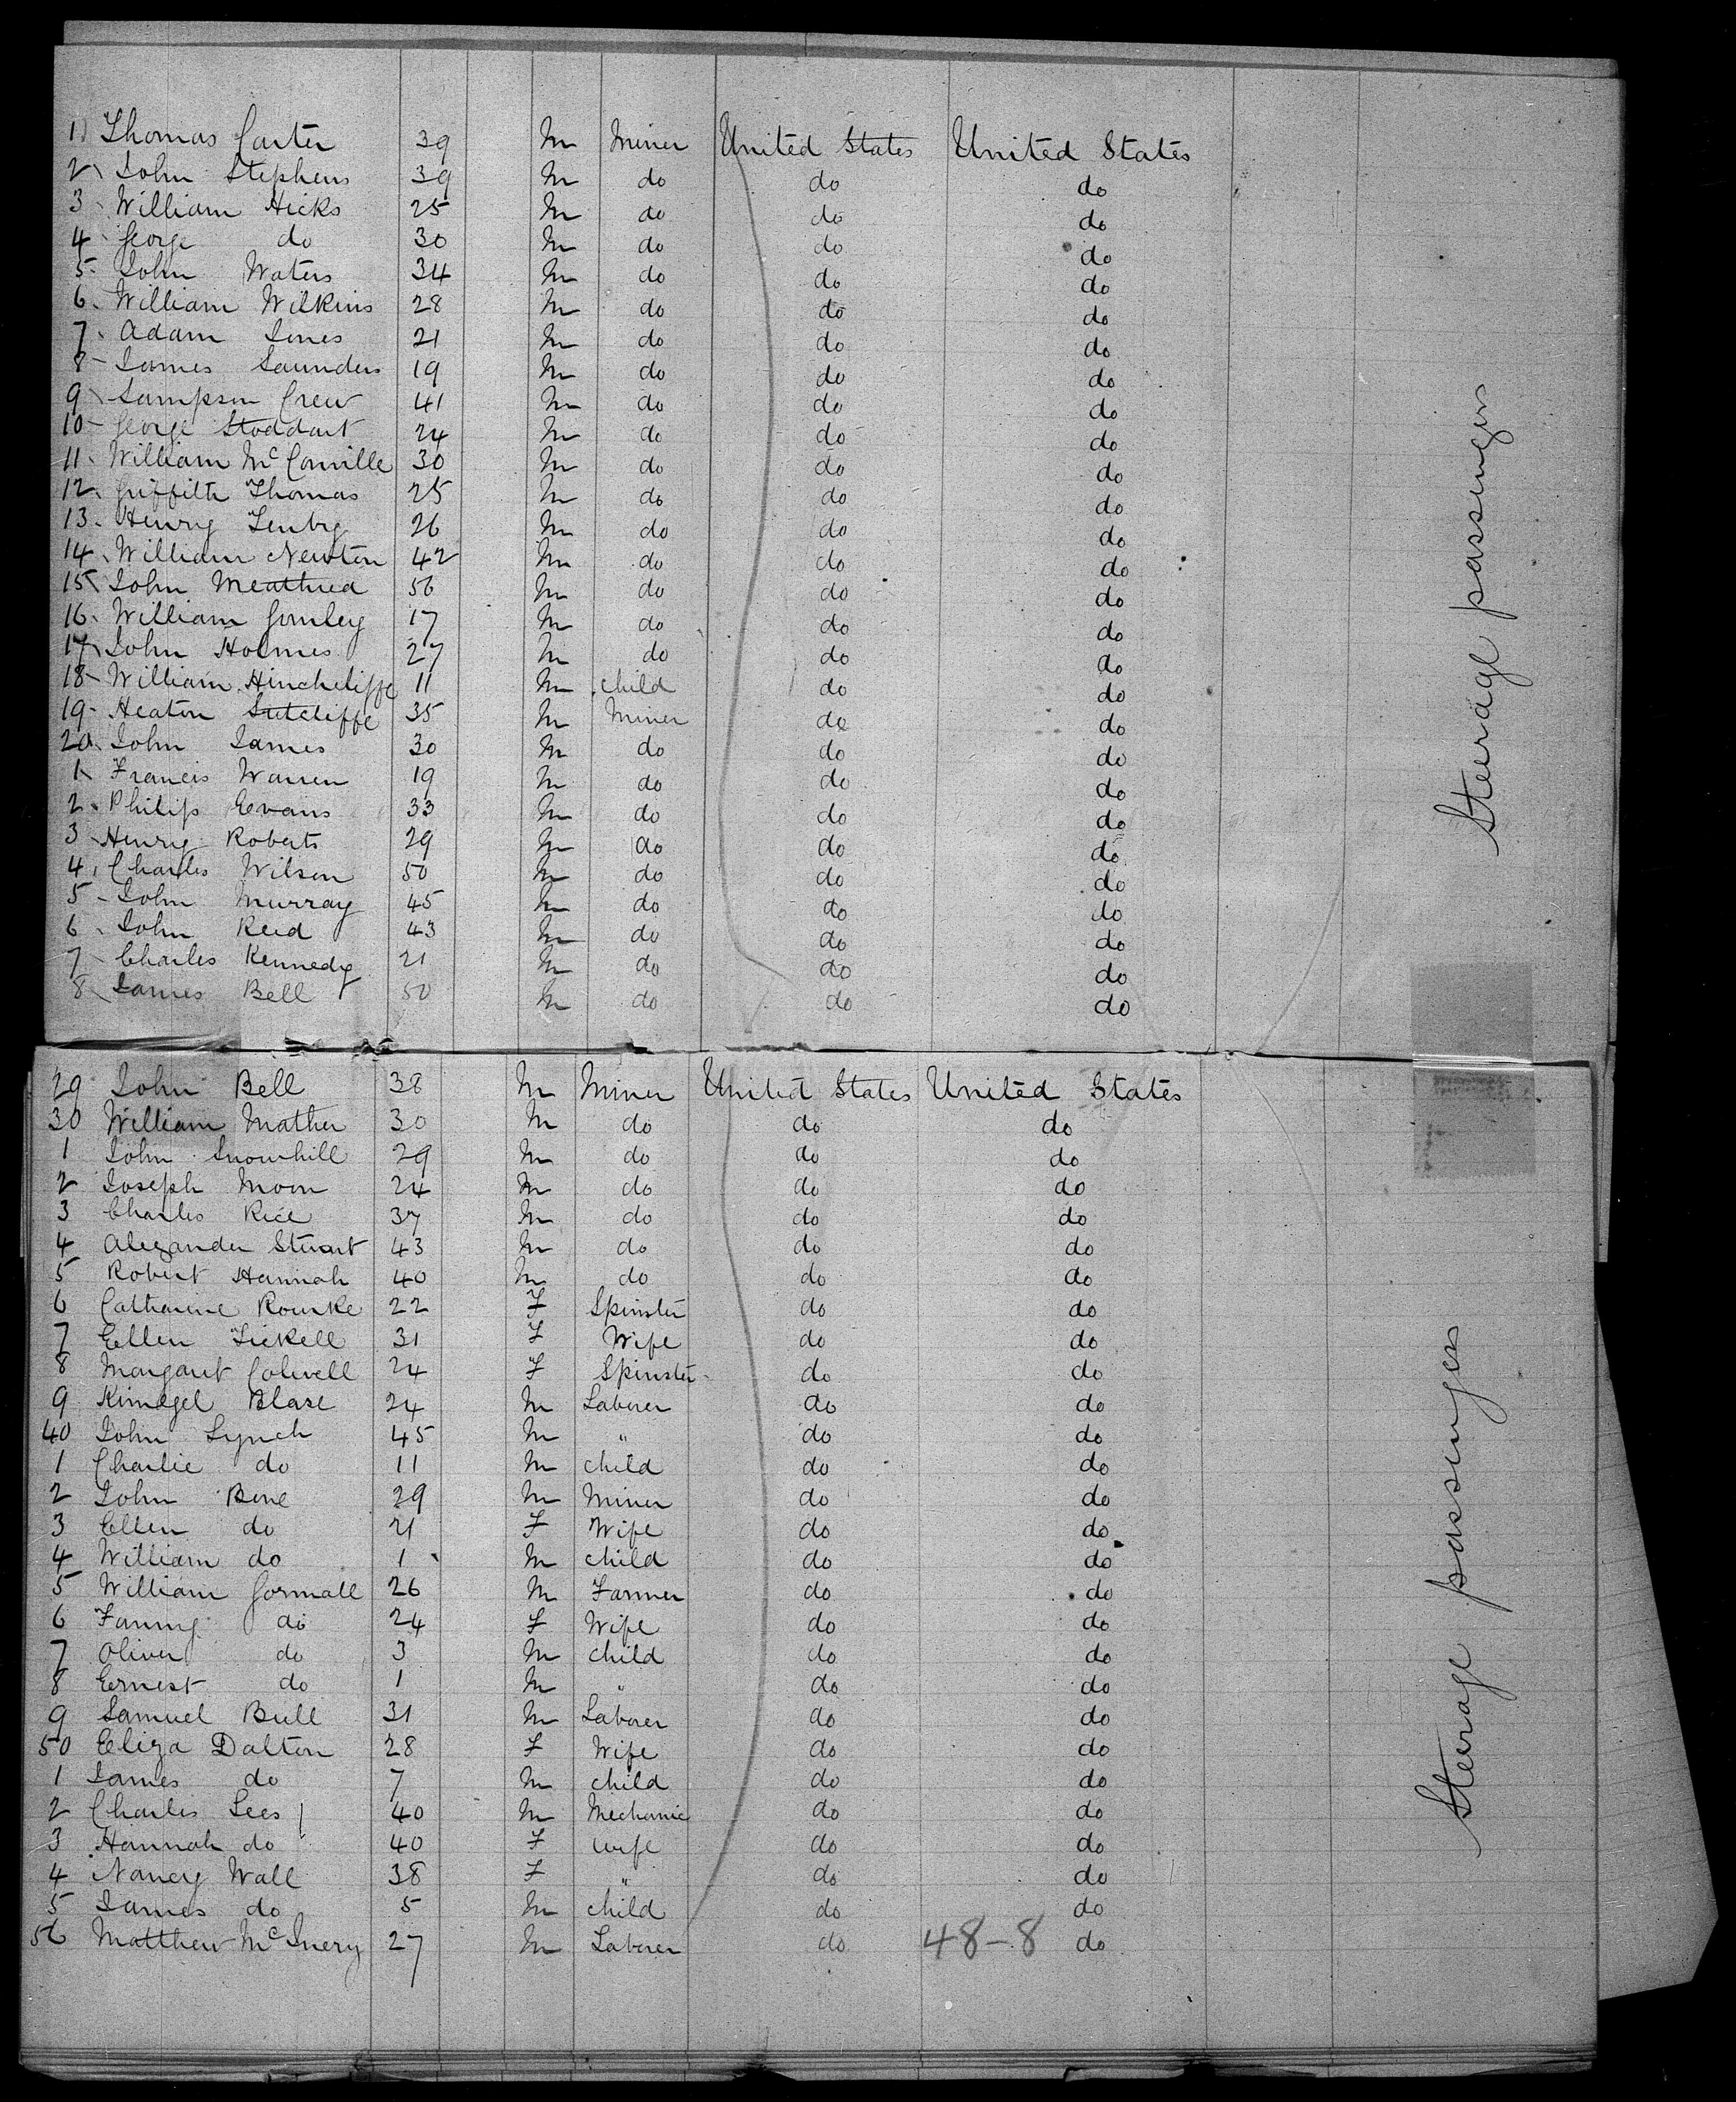 1 Thomas Carter 39 M Miner United States United States
2 John Stephens 39 M do do do
3 William Hicks 25 M do do do
4 George do 30 M do do do
5 John Waters 34 M do do do
6 William Wilkins 28 M do do do
7 Adam Jones 21 M do do do
8 James Saunders 19 M do do do
9 Sampson Crew 41 M do do do
10 George Stoddart 24 M do do do
11 William McConville 30 M do do do
12 Griffith Thomas 25 M do do do
13 Henry 26 M do do do
14 William Newton 42 M do do do
15 John 56 M do do do
16 William Gomley 17 M do do do
17 John Holmes 27 M do do do
18 William Hinchcliffe 11 M child do do
19 Heaton Sutcliffe 35 M Miner do do
20 John James 30 M do do do
1 Francis Warren 19 M do do do
2 Philip Evans 33 M do do do
3 Henry Roberts 29 M do do do
4 Charles Wilson 50 M do do do
5 John Murray 45 M do do do
6 John Reid 43 M do do do
7 Charles Kennedy 21 M do do do
8 James Bell 50 M do do do
Steerage passengers
29 John Bell 38 M Miner United States United States
30 William Mather 30 M do do do
1 John Snowhill 29 M do do do
2 Joseph Moon 24 M do do do
3 Charles Rice 37 M do do do
4 Alexander Stuart 43 M do do do
5 Robert Hannah 40 M do do do
6 Catharine Rourke 22 F Spinster do do
7 Ellen Tickell 31 F Wife do do
8 Margaret Colwell 24 F Spinster do do
9 Blase 24 M Laborer do do
40 John Lynch 45 M " do do
1 Charlie do 11 M child do do
2 John Bone 29 M Miner do do
3 Ellen do 21 F Wife do do
4 William do 1 M child do do
5 William Gormall 26 M Farmer do do
6 Fanny do 24 F Wife do do
7 Oliver do 3 M child do do
8 Ernest do 1 M " do do
9 Samuel Bull 31 M Laborer do do
50 Eliza Dalton 28 F Wife do do
1 James do 7 M child do do
2 Charles Lees 40 M Mechanic do do
3 Hannah do 40 F wife do do
4 Nancy Wall 38 F " do do
5 James do 5 M child do do
56 Matthew McInery 27 M Laborer do 48-8 do
Steerage passengers